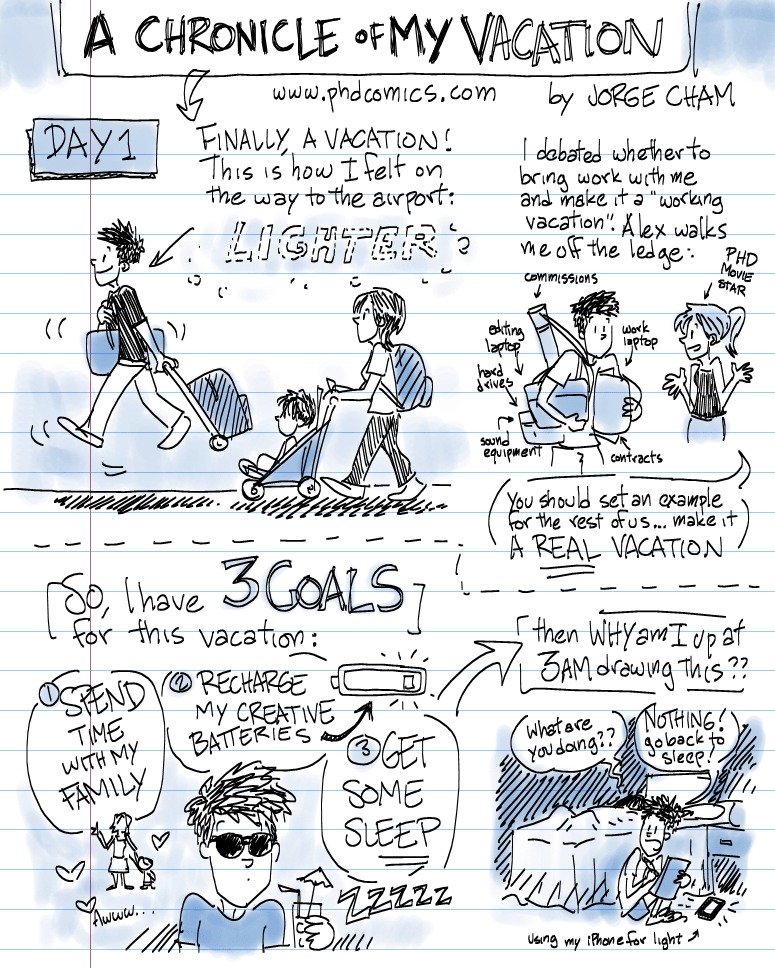 A CHRONICLE OF MY VACATION
www.phdcomics.com
by JORGE CHAM
DAY 1
FINALLY, A VACATION!
This is how I felt on
the way to the airport:
LIGHTER
I debated whether to
bring work with me
and make it a "working
vacation". Alex walks
me off the ledge:
PHD
MOVIE
STAR
commissions
editing
laptop
work
laptop
hard
drives
sound
equipment
contracts
You should set an example
for the rest of us... make it
A REAL VACATION
So, I have 3 GOALS
for this vacation:
1 SPEND
TIME
WITH MY
FAMILY
2 RECHARGE
MY CREATIVE
BATTERIES
3 GET
SOME
SLEEP
Awww...
ZZZZZZ
then WHY am I up at
3AM drawing this??
What are
you doing??
NOTHING!
go back to
sleep!
using my iPhone for light